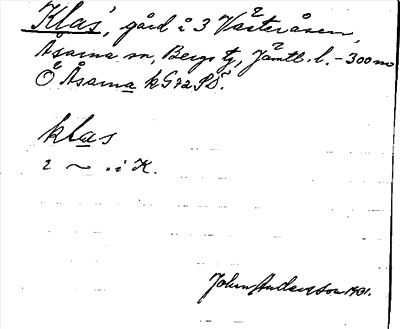 Klas', gård å 3 Västeråsen,
Åsarna sn, Bergs tg, Jämtl. l. - 300 m
Ö Åsarna k G 72 SD.
klas
i ~ . i K.
John Anderson 1931.